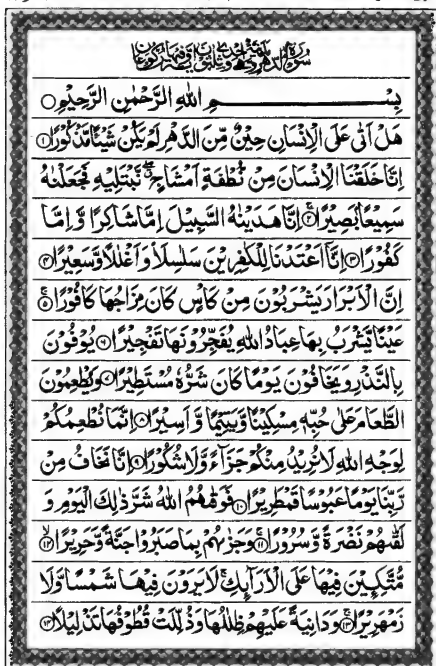 سُورَةُ الدَّهْرِ
بِسْمِ اللهِ الرَّحْمٰنِ الرَّحِيْمِ
هَلْ اَتٰى عَلَى الْاِنْسَانِ حِيْنٌ مِّنَ الدَّهْرِ لَمْ يَكُنْ شَيْئًا مَّذْكُوْرًا ۝۱
اِنَّا خَلَقْنَا الْاِنْسَانَ مِنْ نُّطْفَةٍ اَمْشَاجٍ نَّبْتَلِيْهِ فَجَعَلْنٰهُ
سَمِيْعًا بَصِيْرًا ۝۲ اِنَّا هَدَيْنٰهُ السَّبِيْلَ اِمَّا شَاكِرًا وَّاِمَّا
كَفُوْرًا ۝۳ اِنَّا اَعْتَدْنَا لِلْكٰفِرِيْنَ سَلٰسِلَا۟ وَاَغْلٰلًا وَّسَعِيْرًا ۝۴
اِنَّ الْاَبْرَارَ يَشْرَبُوْنَ مِنْ كَاْسٍ كَانَ مِزَاجُهَا كَافُوْرًا ۝۵
عَيْنًا يَّشْرَبُ بِهَا عِبَادُ اللهِ يُفَجِّرُوْنَهَا تَفْجِيْرًا ۝۶ يُوْفُوْنَ
بِالنَّذْرِ وَيَخَافُوْنَ يَوْمًا كَانَ شَرُّهٗ مُسْتَطِيْرًا ۝۷ وَيُطْعِمُوْنَ
الطَّعَامَ عَلٰى حُبِّهٖ مِسْكِيْنًا وَّيَتِيْمًا وَّاَسِيْرًا ۝۸ اِنَّمَا نُطْعِمُكُمْ
لِوَجْهِ اللهِ لَا نُرِيْدُ مِنْكُمْ جَزَآءً وَّلَا شُكُوْرًا ۝۹ اِنَّا نَخَافُ مِنْ
رَّبِّنَا يَوْمًا عَبُوْسًا قَمْطَرِيْرًا ۝۱۰ فَوَقٰىهُمُ اللهُ شَرَّ ذٰلِكَ الْيَوْمِ وَ
لَقّٰىهُمْ نَضْرَةً وَّسُرُوْرًا ۝۱۱ وَجَزٰىهُمْ بِمَا صَبَرُوْا جَنَّةً وَّحَرِيْرًا ۝۱۲
مُّتَّكِـِٕيْنَ فِيْهَا عَلَى الْاَرَآىِٕكِ لَا يَرَوْنَ فِيْهَا شَمْسًا وَّلَا
زَمْهَرِيْرًا ۝۱۳ وَدَانِيَةً عَلَيْهِمْ ظِلٰلُهَا وَذُلِّلَتْ قُطُوْفُهَا تَذْلِيْلًا ۝۱۴